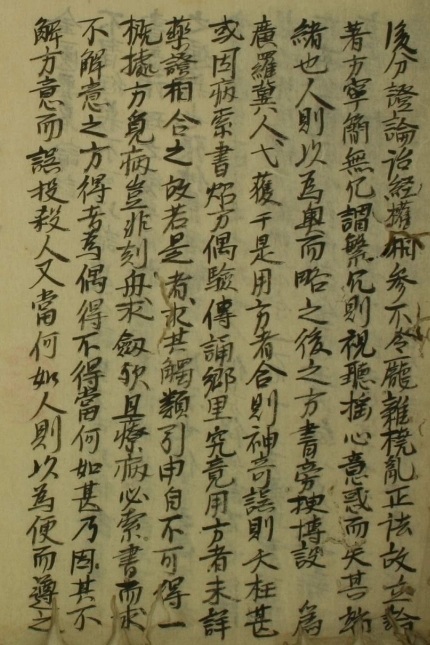 後分證論治經權相參不令龐雜撓亂正法故立論
著方寧簡無冗謂繁冗則視聽搖心意惑而失其斬
緒也人則以為畢而略之後之方書旁搜博設　為
廣羅冀人弋獲于是用方者合則神奇誤則夭枉甚
或因病索書炤方偶驗傳誦鄉里究竟用方者未詳
藥證相合之故若是者求其觸類引申自不可得一
概據方覓病豈非刻舟求劔歟且療病必索書而求
不解意之方得者為偶得不得當何如甚乃因其不
解方意而誤投殺人又當何如人則以為便而遵之